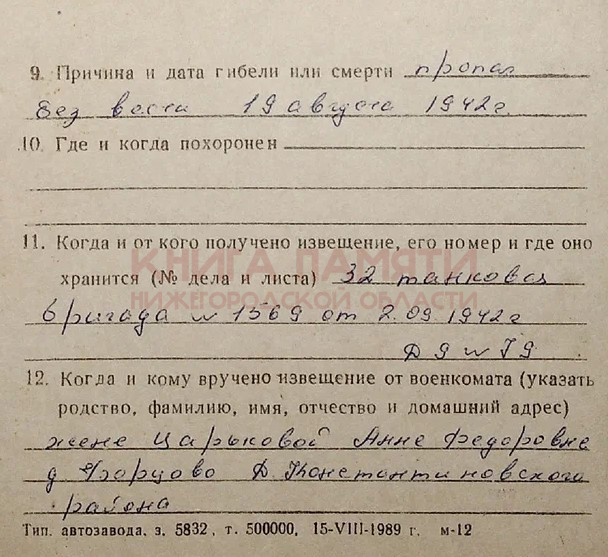 9. Причина и дата гибели или смерти пропал
без вести 19 августа 1942г.
10. Где и когда похоронен
11. Когда и от кого получено извещение, его номер и где оно
КНИГА ПАМЯТИ
хранится (№ дела и листа) 32 танковая
НИЖЕГОРОДСКОЙ ОБЛАСТИ
бригада № 1569 от 2.09.1942г
Д 9
12. Когда и кому вручено извещение от военкомата (указать
родство, фамилию, имя, отчество и домашний адрес)
жене Царьковой Анне Федоровне
д Д Константиновского
района
Тип. автозавода, з. 5832, т. 500000, 15-VIII-1989 г. м-12